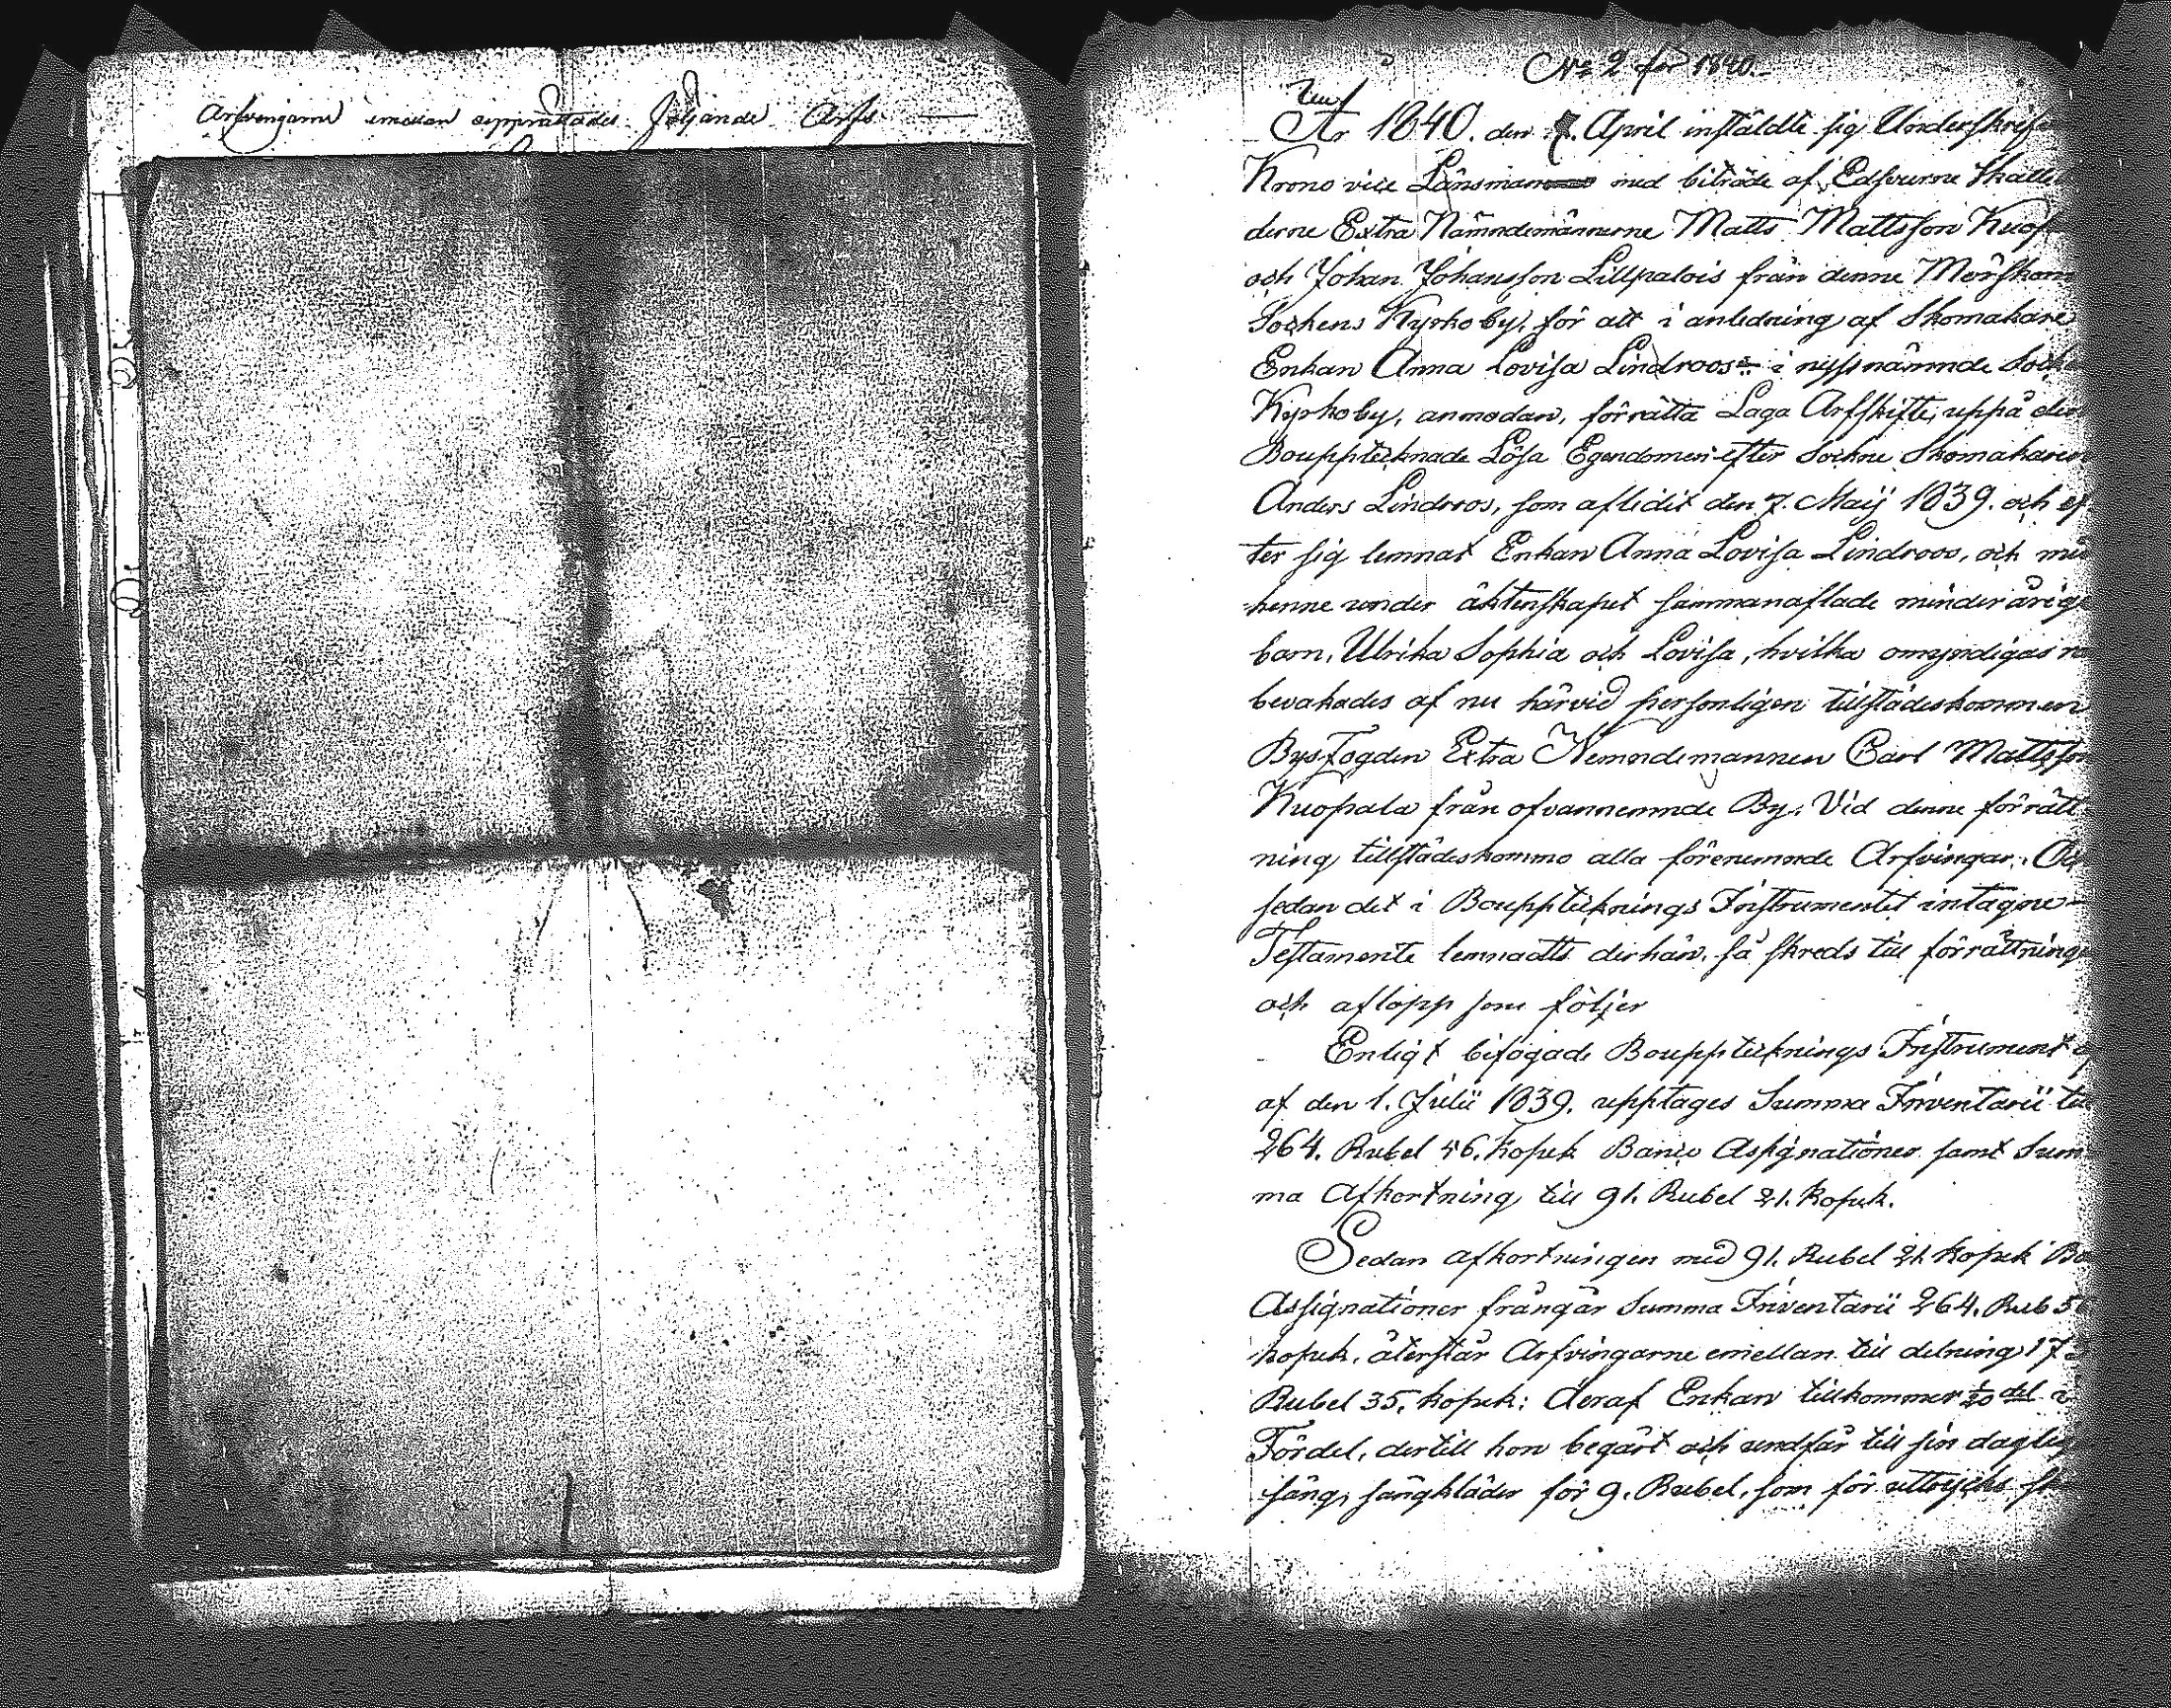 Arfvingarne emellan upprättades följande Arfs
No 2 för 1840.
År 1840. den 7. April instäldte sig Underskrif
Krono vice Länsman med biträde af Edsvurne
derne Extra Nämndemännerne Matts Mattsson Kuop
och Johan Johansson Lillpalois från denne Mörskom
Sockens Kyrkoby, för att i anledning af Skomakare
Enkan Anna Lovisa Lindroos i nyssnämnde Sock
Kyrkoby, anmodan, förrätta Laga Arfskifte, uppå den
Bouppteknade Lösa Egendomen efter Sockne Skomakaren
Anders Lindroos, som aflidit den 7. Maij 1839. och ef
ter sig lemnat Enkan Anna Lovisa Lindroos, och med
henne under äktenskapet sammanaflade minderårige
barn, Ulrika Sophia och Lovisa, hvilka omyndigas rä
bevakades af nu härvid personligen tillstädeskommen
Bys Fogden Extra Nemndemannen Carl Mattsson
Kuopala från ofvannemnde By. Vid denne förrätt
ning tillstädeskommo alla förenemnde Arfvingar. Och
sedan det i Bouppteknings Instrumentet intagne
Testamente lemnadts derhän, så skreds till förrättninge
och aflopp som följer
Enligt bifogade Bouppteknings Instrument
af den 1. Julii 1839. upptages Summa Inventarii till
264. Rubel 56. Kopek Banco Assignationer samt Sum
ma Afkortning till 91. Rubel 21. Kopek.
Sedan afkortningen med 91. Rubel 21. Kopek Bo
Assignationer frångår Summa Inventarii 264. Rub 56
kopek, återstår Arfvingarne emellan till delning 173
Rubel 35. kopek: deraf Enkan tillkommer 1/20 del i
Fördel, dertill hon begärt och undfår till sin daglig
säng, sängkläder för 9. Rubel, som för uttryckes